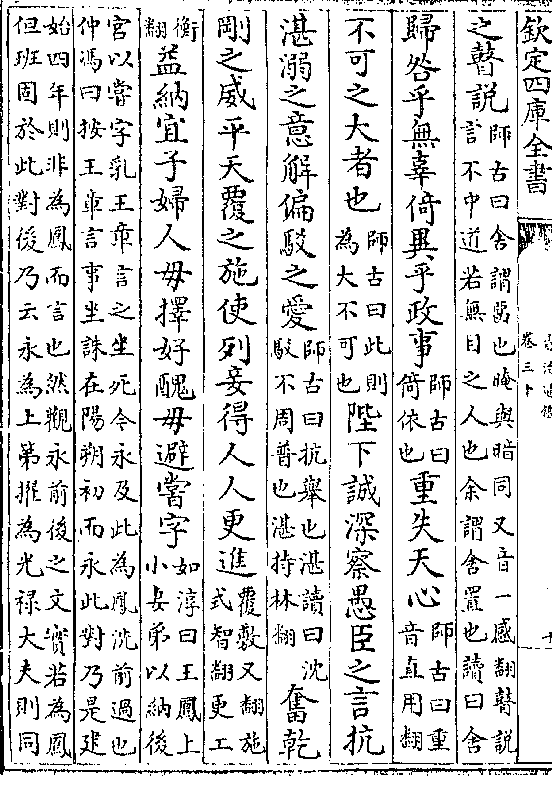 欽定四庫全書
卷三十
之瞽説師古曰舍謂啚也晻與暗同又音一感翻瞽説言不中道若無目之人也余謂舍置也讀曰舍
歸咎乎無辜倚異乎政事師古曰倚依也重失天心師古曰重音直用翻
不可之大者也師古曰此則為大不可也陛下誠深察愚臣之言抗
湛溺之意解偏駁之愛師古曰抗舉也湛讀曰沈駁不周普也湛持林翻奮乾
剛之威平天覆之施使列妾得人人更進覆敷又翻施式智翻更工
衡翻益納宜子婦人毋擇好醜毋避嘗字如淳曰王鳳上小妻弟以納後
宫以嘗字乳王章言之坐死今永及此為鳳洗前過也仲馮曰按王章言事坐誅在陽朔初而永此對乃是建
始四年則非為鳳而言也然觀永前後之文實若為鳳但班固於此對後乃云永為上第擢為光禄大夫則同